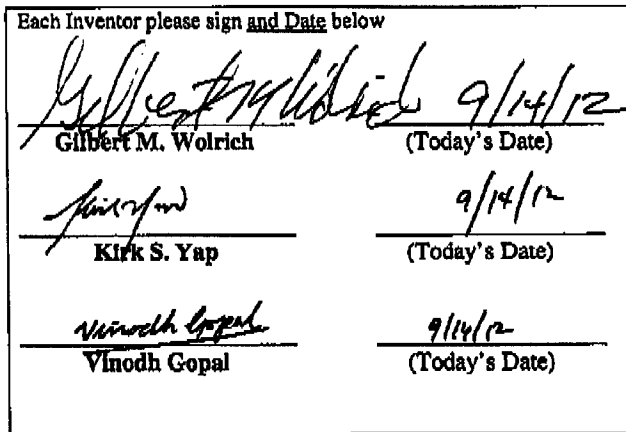 Each Inventor please sign and Date below
Gilbert M Wolrich 9/14/12
Gilbert M. Wolrich (Today's Date)
9/14/12
Kirk S. Yap (Today's Date)
Vinodh Gopal 9/14/12
Vinodh Gopal (Today's Date)